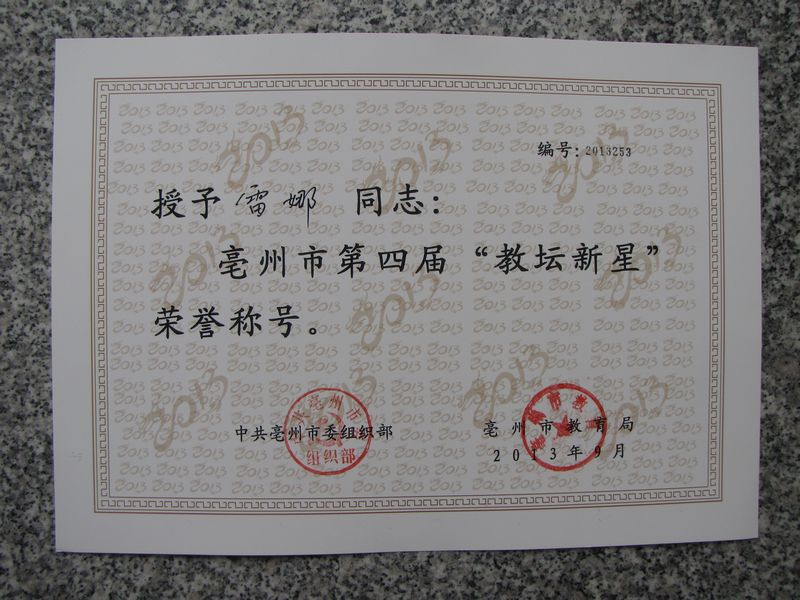 编号：2013253
授予 雷娜 同志：
亳州市第四届“教坛新星”
荣誉称号。
中共亳州市委组织部
亳州市教育局
2013年9月
组织部